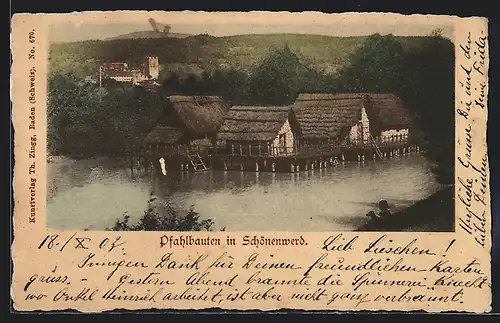 Kunstverlag Th. Zingg, Baden (Schweiz). No. 670.
Pfahlbauten in Schönenwerd.
18./X 07.
Lieb Lieschen!
Innigen Dank für Deinen freundlichen Karten
gruss. - gestern Abend brannte die Spinnerei
wo Onkel Heinrich arbeitet, ist aber nicht ganz verbrannt.
Herzliche Grüsse Dir und den
lieben Deinen